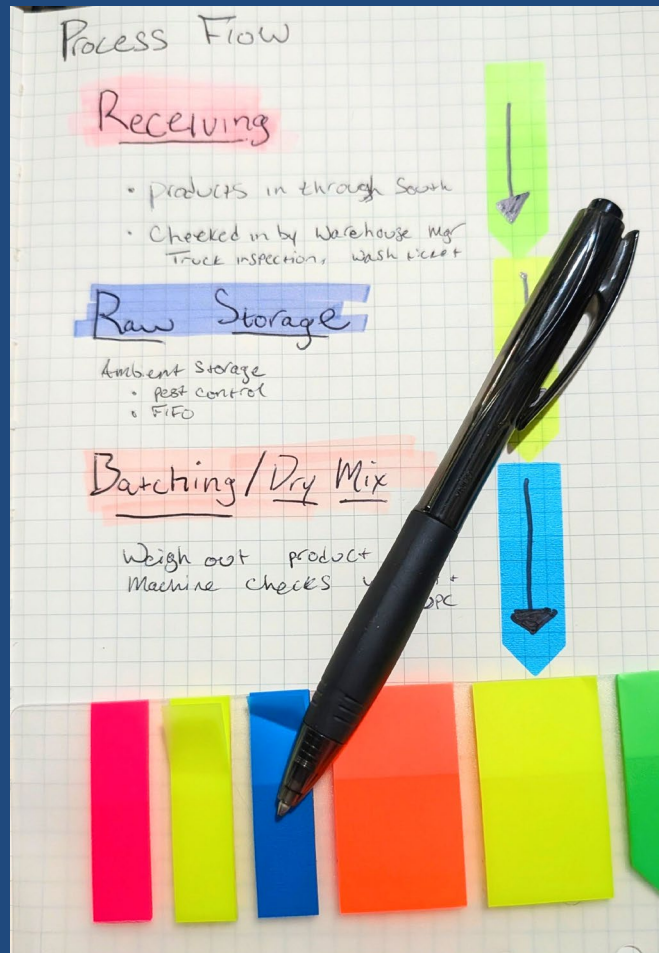 Process Flow
Receiving
• products in through South
• Checked in by Warehouse Mgr
Truck inspection, wash ticket
Raw Storage
Ambient Storage
• pest control
• FIFO
Batching / Dry Mix
Weigh out product
Machine checks